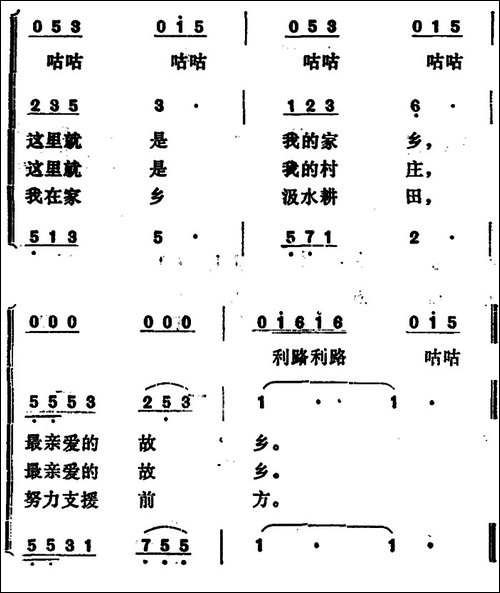 0 5 3 0 i 5 | 0 5 3 0 1 5
咕咕 咕咕 咕咕 咕咕
2 3 5 3 · | 1 2 3 6 ·
这里就 是 我的家 乡,
这里就 是 我的村 庄,
我在家 乡 汲水耕 田,
5 1 3 5 · | 5 7 1 2 ·
0 0 0 0 0 0 | 0 i 6 i 6 0 i 5
利路利路 咕咕
5 5 5 3 2 5 3 | 1 · · 1 ·
最亲爱的 故 乡。
最亲爱的 故 乡。
努力支援 前 方。
5 5 3 1 7 5 5 | 1 · · 1 ·